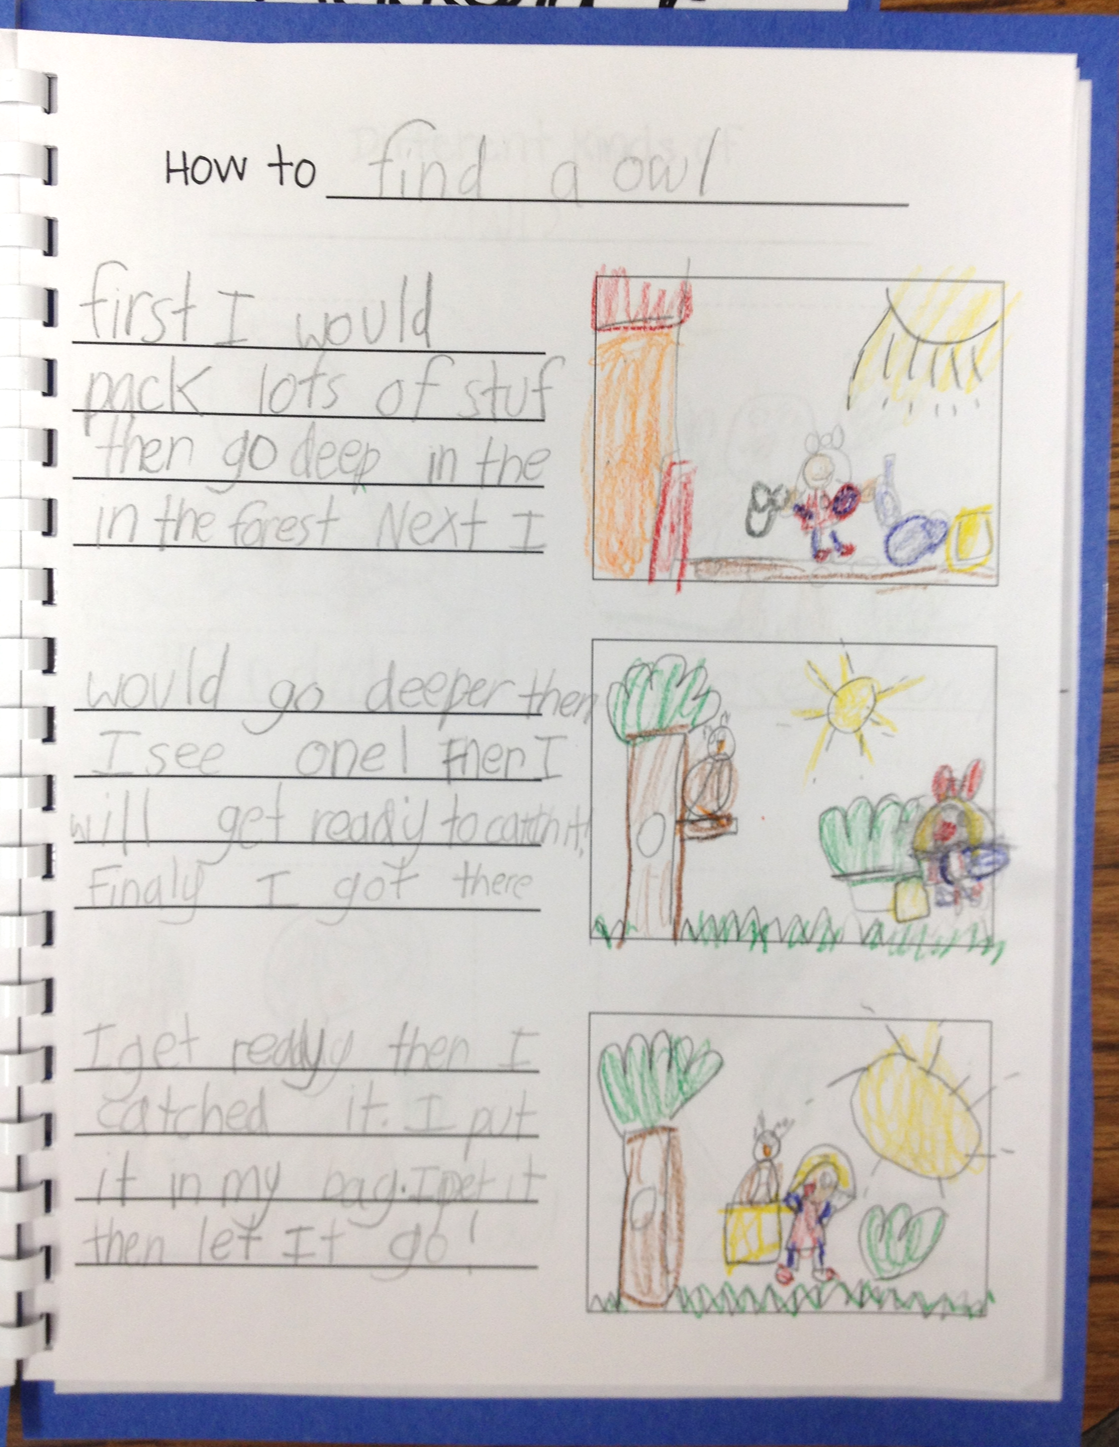 How to find a owl
first I would
pack lots of stuf
then go deep in the
in the forest Next I
would go deeper then
I see one! Then I
will get ready to catch it!
Finaly I got there
I get ready then I
catched it. I put
it in my bag. I pet it
then let It go!